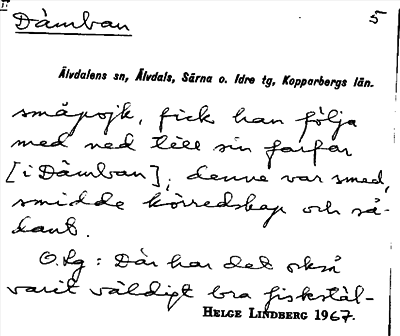 Dåmban
5
Älvdalens sn, Älvdals, Särna o. Idre tg, Kopparbergs län.
småpojk, fick han följa
med ned till sin farfar
[i Dåmban]; denne var smed,
smidde körredskap och så-
dant.
O.Lg: Där har det också
varit väldigt bra fiskstäl-
HELGE LINDBERG 1967.